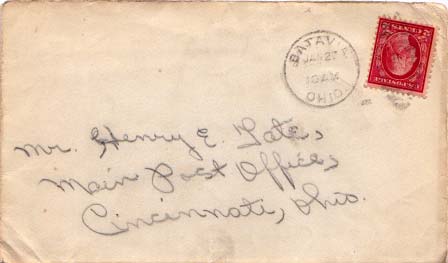 BATAVIA
JAN 27
10 AM
OHIO.
Mr. Henry E. Yates,
Main Post Office,
Cincinnati, Ohio.